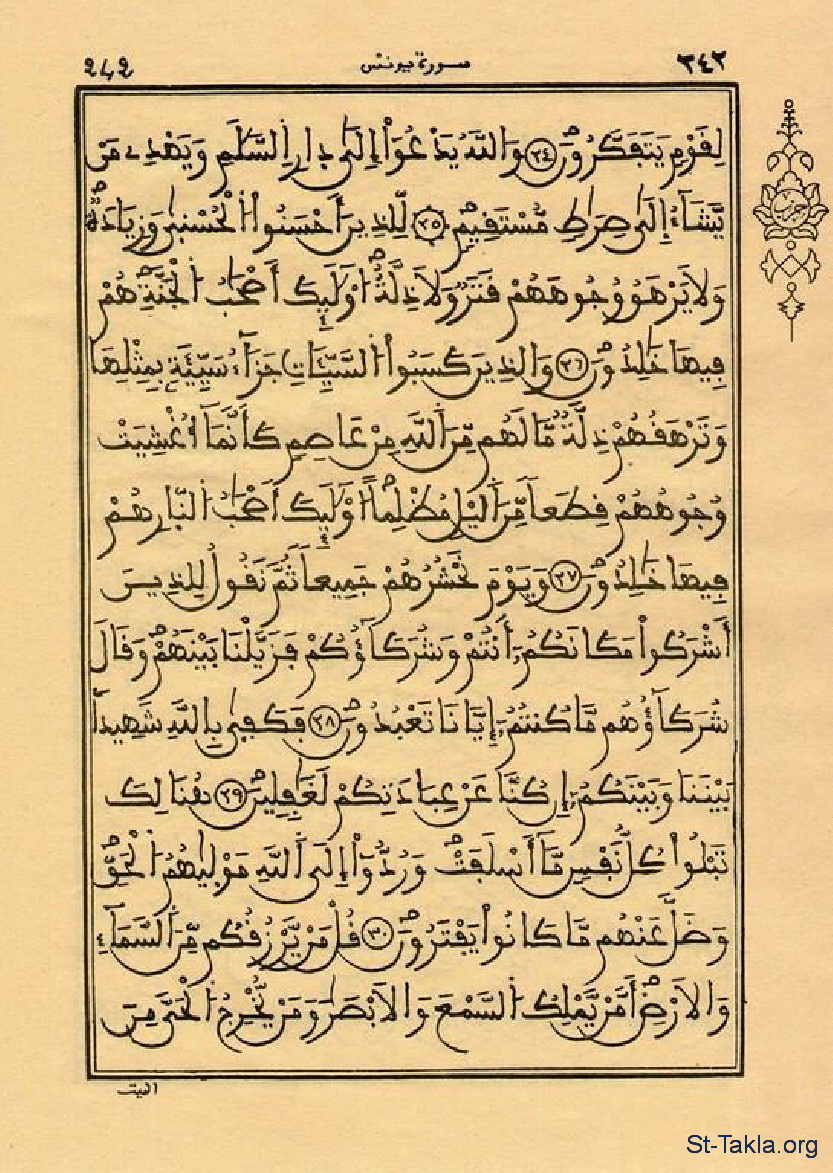 ٢٤٢ سورة يونس 242
لِقَوْمٍ يَتَفَكَّرُونَ ٢٤ وَاللَّهُ يَدْعُوٓاْ إِلَىٰ دِارِ السَّلَٰمِ وَيَهْدِے مَنْ
يَّشَآءُ إِلَىٰ صِرَٰطٍ مُّسْتَقِيمٍ ٢٥ لِّلذِينَ أَحْسَنُواْ الْحُسْنَىٰ وَزِيَادَةٌ
وَلَا يَرْهَقُ وُجُوهَهُمْ قَتَرٌ وَلَا ذِلَّةٌ اوْلَٰٓئِكَ أَصْحَٰبُ الْجَنَّةِ هُمْ
فِيهَا خَٰلِدُونَ ٢٦ وَالذِينَ كَسَبُواْ السَّيِّـَٔاتِ جَزَآءُ سَيِّئَةٍ بِمِثْلِهَا
وَتَرْهَقُهُمْ ذِلَّةٌ مَّا لَهُم مِّنَ اللَّهِ مِنْ عَاصِمٍ كَأَنَّمَآ أُغْشِيَتْ
وُجُوهُهُمْ قِطَعاً مِّنَ اَلَّيْلِ مُظْلِماً اوْلَٰٓئِكَ أَصْحَٰبُ النَّارِ هُمْ
فِيهَا خَٰلِدُونَ ٢٧ وَيَوْمَ نَحْشُرُهُمْ جَمِيعاً ثُمَّ نَقُولُ لِلذِينَ
أَشْرَكُواْ مَكَانَكُمُۥٓ أَنتُمْ وَشُرَكَآؤُكُمْ فَزَيَّلْنَا بَيْنَهُمْ وَقَالَ
شُرَكَآؤُهُم مَّا كُنتُمُۥٓ إِيَّانَا تَعْبُدُونَ ٢٨ فَكَفَىٰ بِاللَّهِ شَهِيداً
بَيْنَنَا وَبَيْنَكُمُۥٓ إِن كُنَّا عَنْ عِبَادَتِكُمْ لَغَٰفِلِينَ ٢٩ هُنَالِكَ
تَبْلُواْ كُلُّ نَفْسٍ مَّآ أَسْلَفَتْ وَرُدُّوٓاْ إِلَى اَللَّهِ مَوْلَىٰهُمُ الْحَقِّ
وَضَلَّ عَنْهُم مَّا كَانُواْ يَفْتَرُونَ ٣٠ قُلْ مَنْ يَّرْزُقُكُم مِّنَ السَّمَآءِ
وَالَارْضِ أَمَّنْ يَّمْلِكُ السَّمْعَ وَالَابْصَٰرَ وَمَنْ يُّخْرِجُ الْحَيَّ مِنَ
الميت
حزب
St-Takla.org